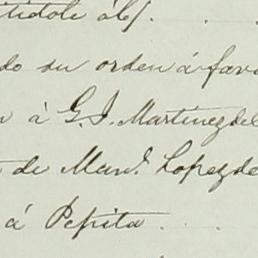 titidole á 6/.
do su orden á favo
n á G. J. Martinez del
de Man.l Lopez de
á Pepita